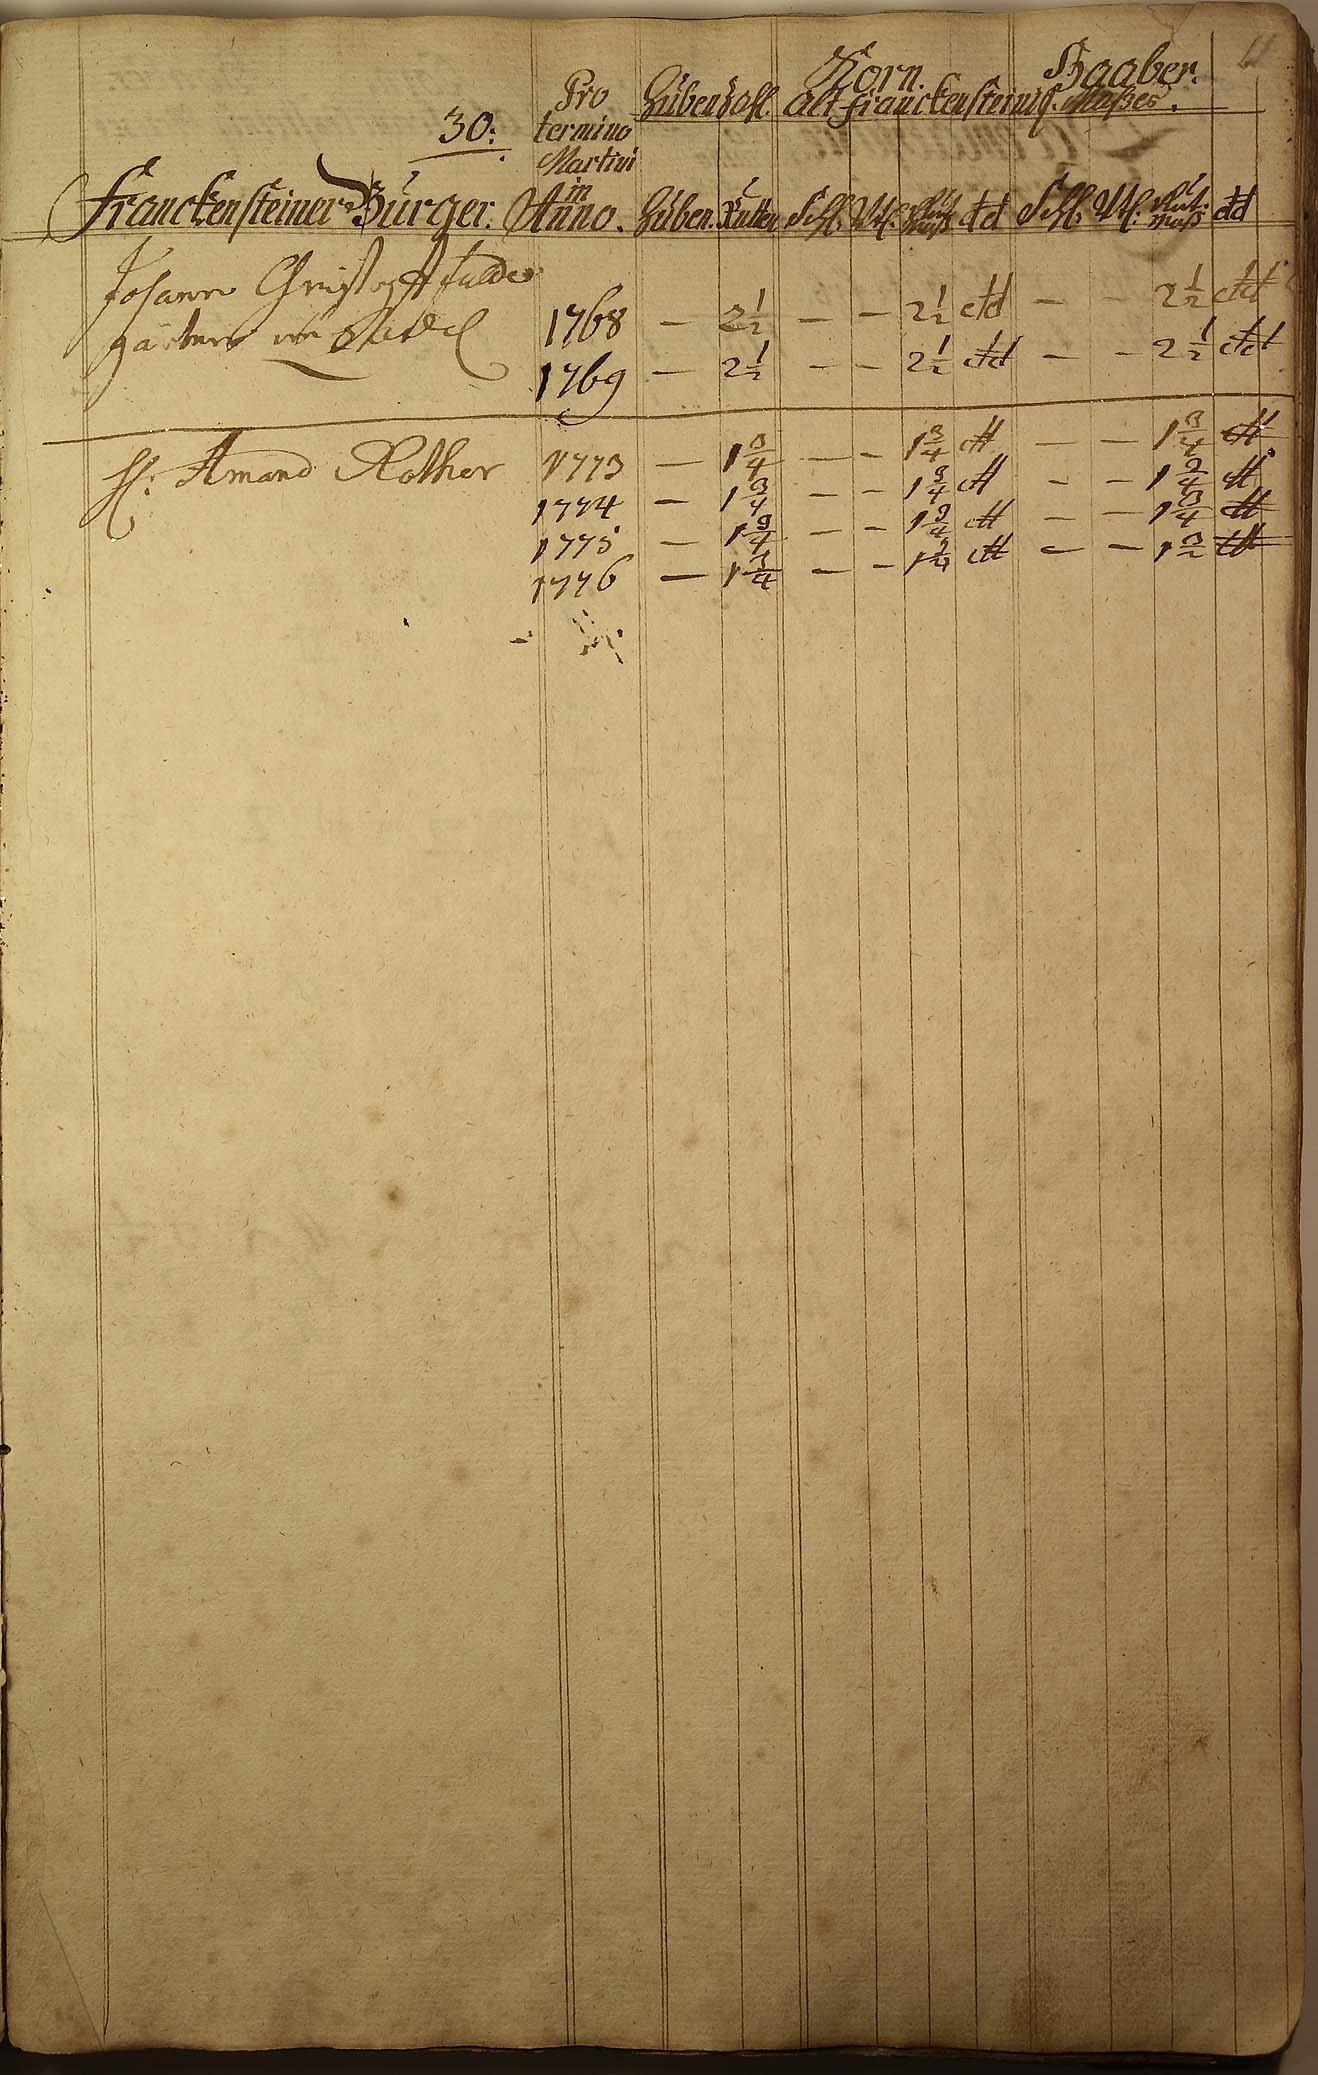 11
30:
Pro termino Martini in Anno.
Hubenzahl.
Korn.
Haaber.
alt franckensteinis. Maßes.
Franckensteiner Bürger.
Huben. Rutten Schl. Vtl. Maß dd Schl. Vtl. Maß dd
Johann Christoph
Gärtner in
1768 — 2½ — — 2½ dd — — 2½ dd
1769 — 2½ — — 2½ dd — — 2½ dd
H: Amand Rother 1773 — 1¾ — — 1¾ dt — — 1¾ dt
1774 — 1¾ — — 1¾ dt — — 1¾ dt
1775 — 1¾ — — 1¾ dt — — 1¾ dt
1776 — 1¾ — — 1¾ dt — — 1 3/2 dt